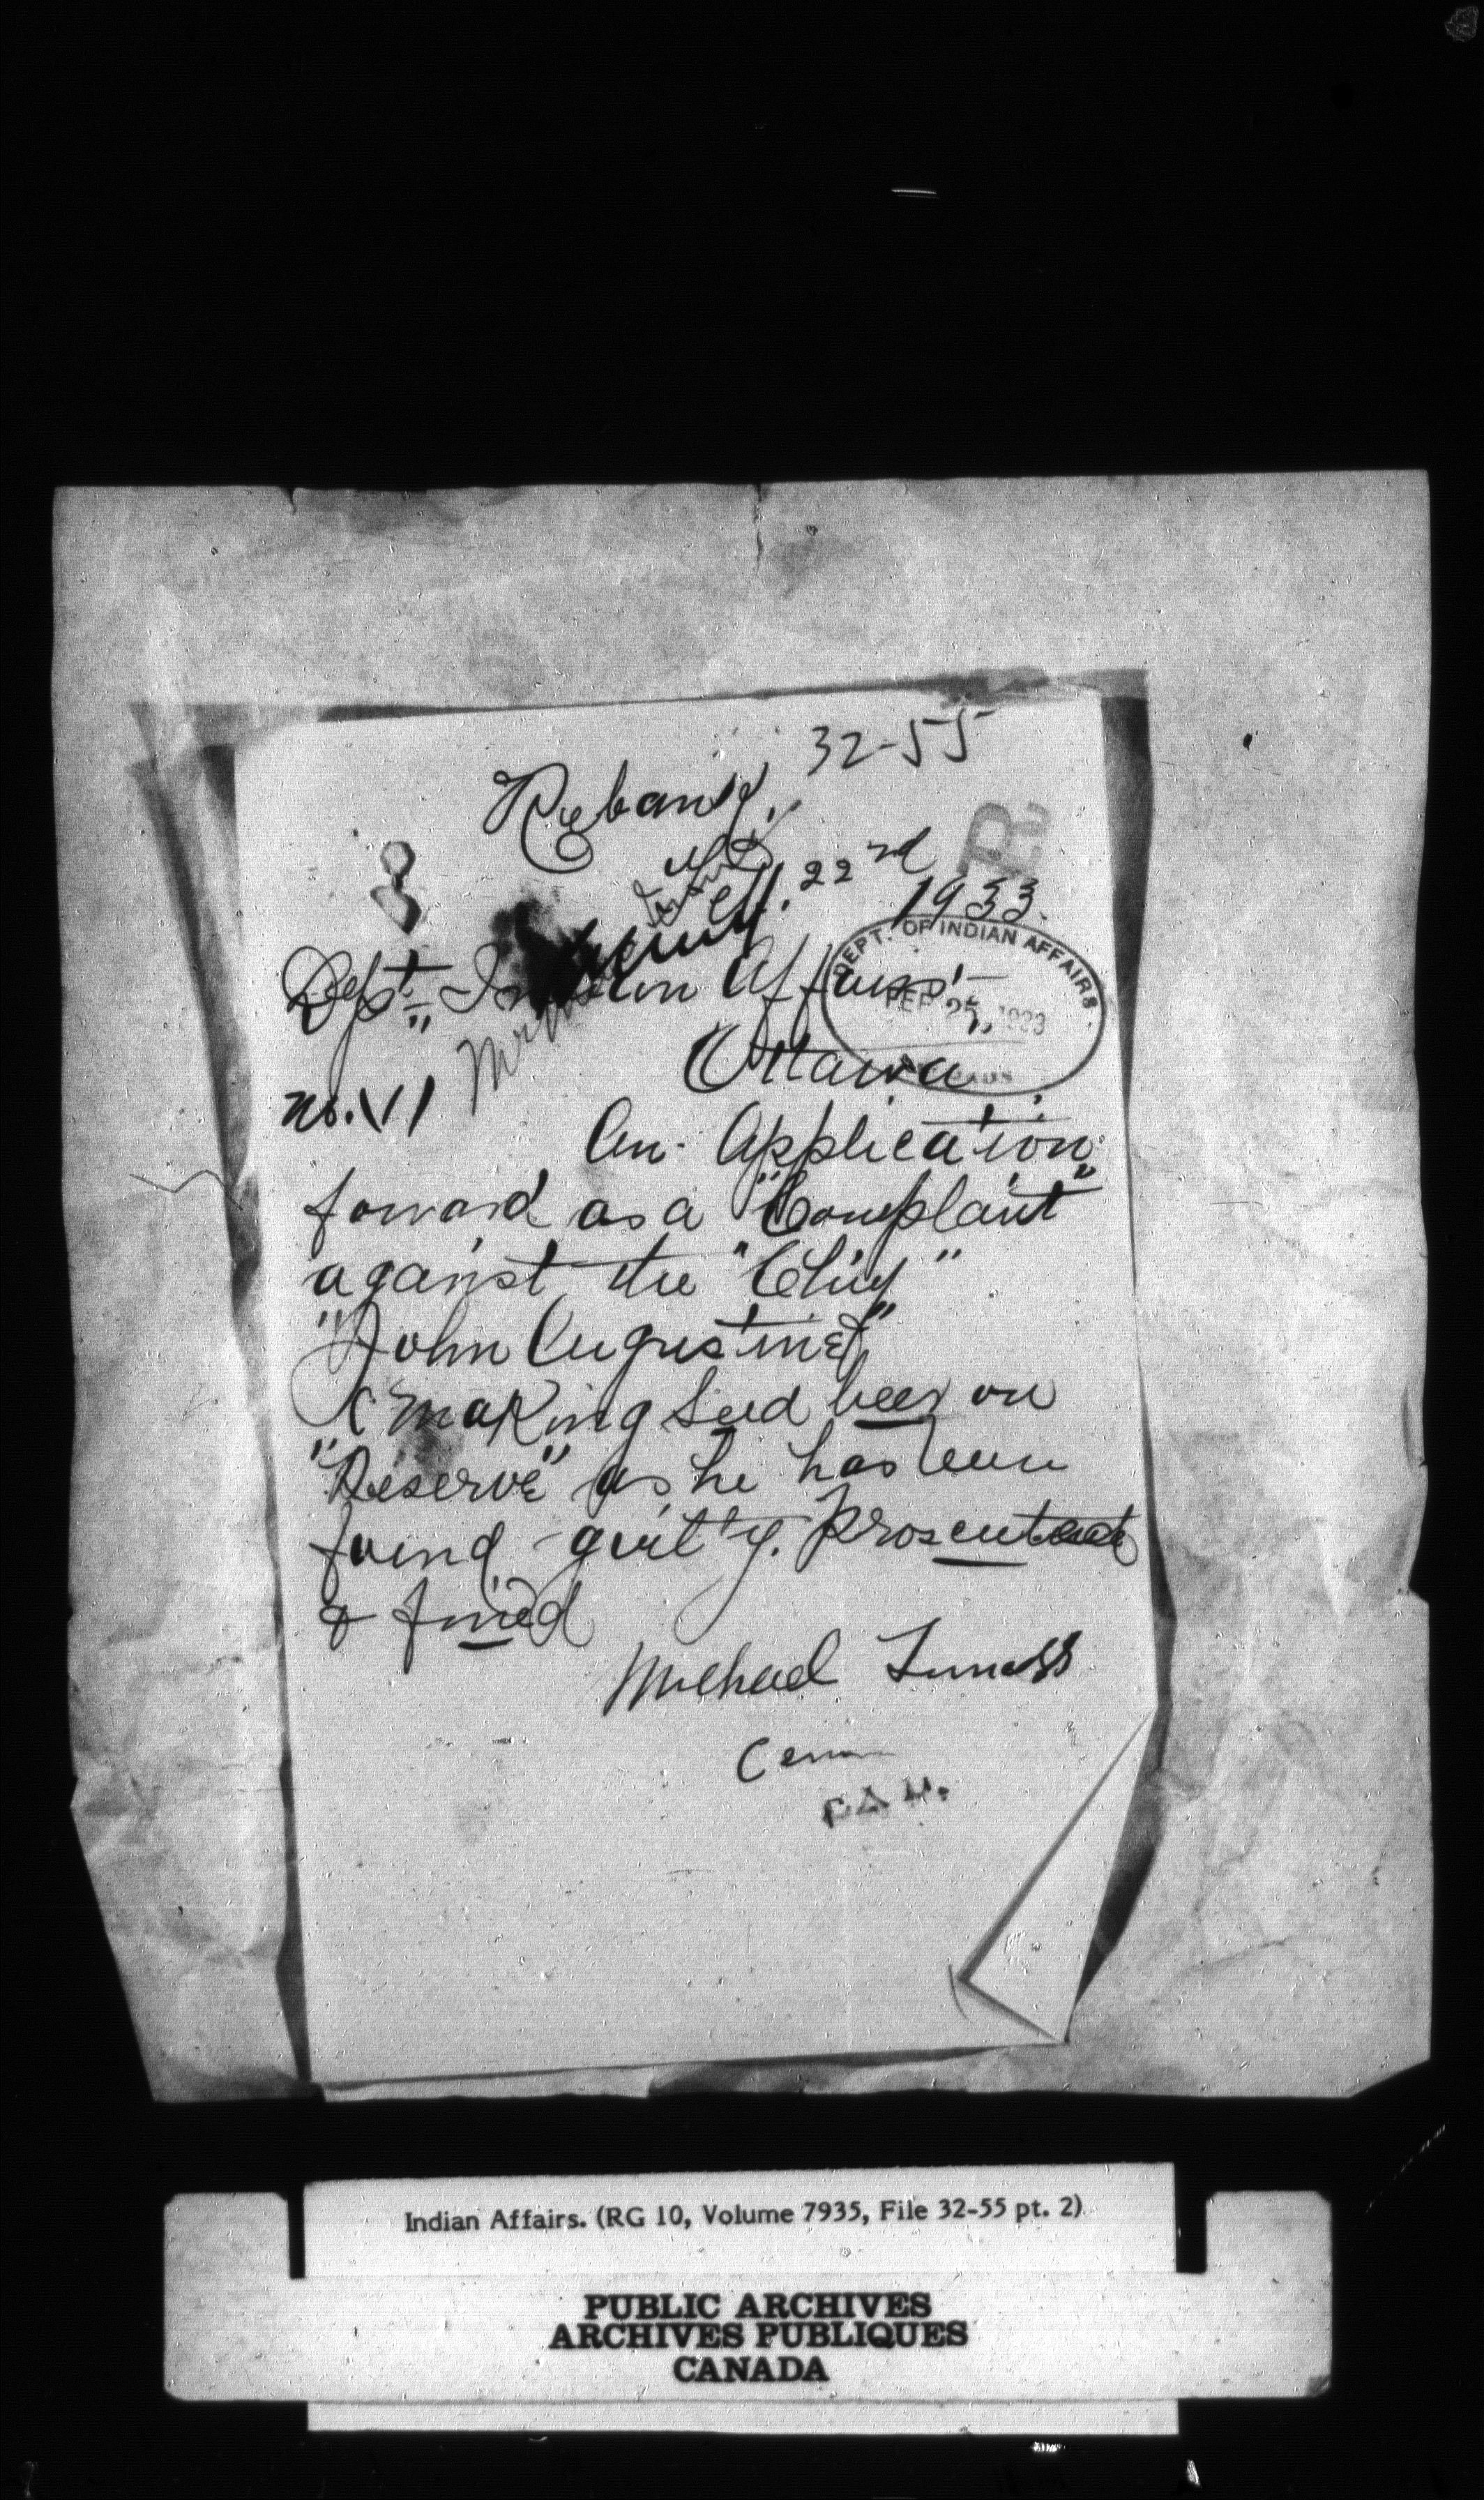 32-55
Rexband,
R.
22nd
1933.
DEPT. OF INDIAN AFFAIRS
FEB 25 1933
Dept. Indian Affairs
Ottawa
No. VI
An Application
forward as a "Complaint"
against the "Chief"
"John Augustine"
(making Seed beer on
"Reserve" as he has been
found guilty. Prosecuted
& fined
Michael
Indian Affairs. (RG 10, Volume 7935, File 32-55 pt. 2)
PUBLIC ARCHIVES
ARCHIVES PUBLIQUES
CANADA